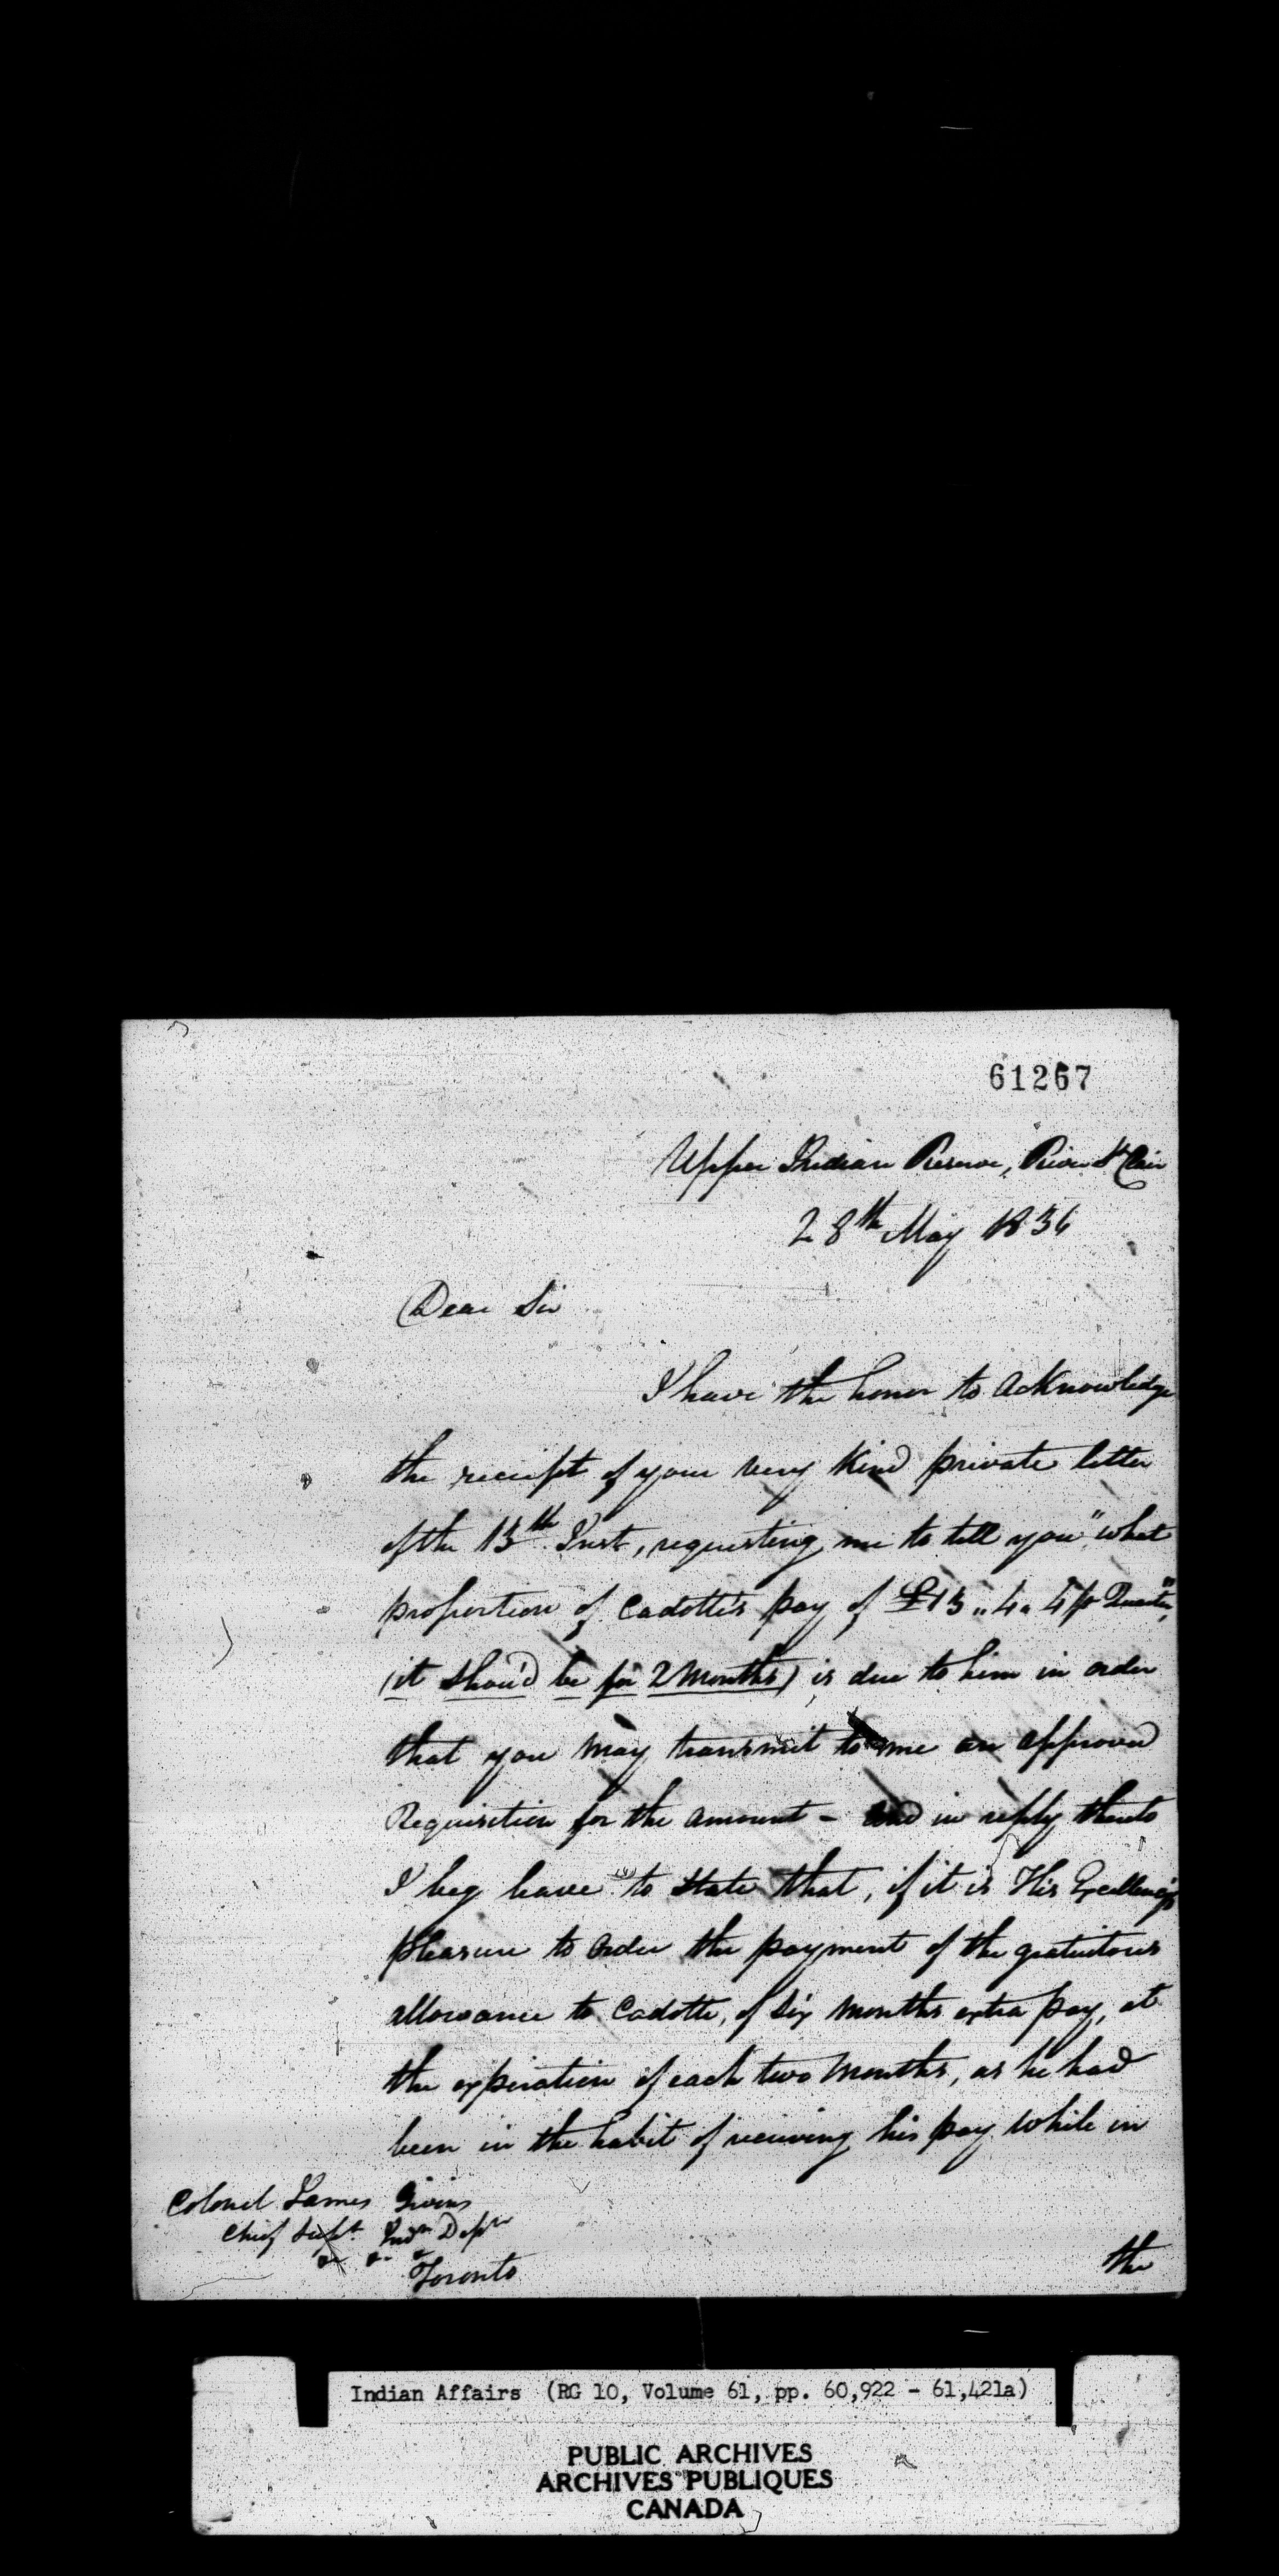 61267
Upper Indian Reserve, River St Clair
28th May 1836
Dear Sir
I have the honor to acknowledge
the receipt of your very kind private letter
of the 13th Inst, requesting me to tell you "what
proportion of Cadotte's pay of £13 .. 4 .. 4 pr Quarter",
(it shou'd be for 2 months) is due to him in order
that you may transmit to me an approved
Requisition for the amount - and in reply thereto
I beg leave to state that, if it is His Excellency's
pleasure to order the payment of the gratuitous
allowance to Cadotte, of Six months extra pay, at
the expiration of each two months, as he had
been in the habit of receiving his pay while in
Colonel James Givins
Chief Supt. Indn Depn
Toronto
the
Indian Affairs (RG 10, Volume 61, pp. 60,922 - 61,421a)
PUBLIC ARCHIVES
ARCHIVES PUBLIQUES
CANADA